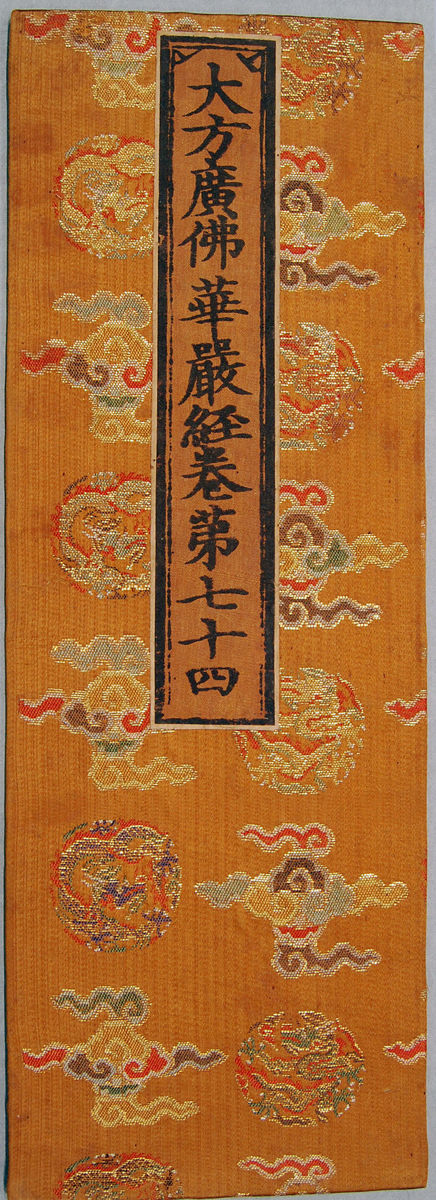 大方廣佛華嚴經卷第七十四